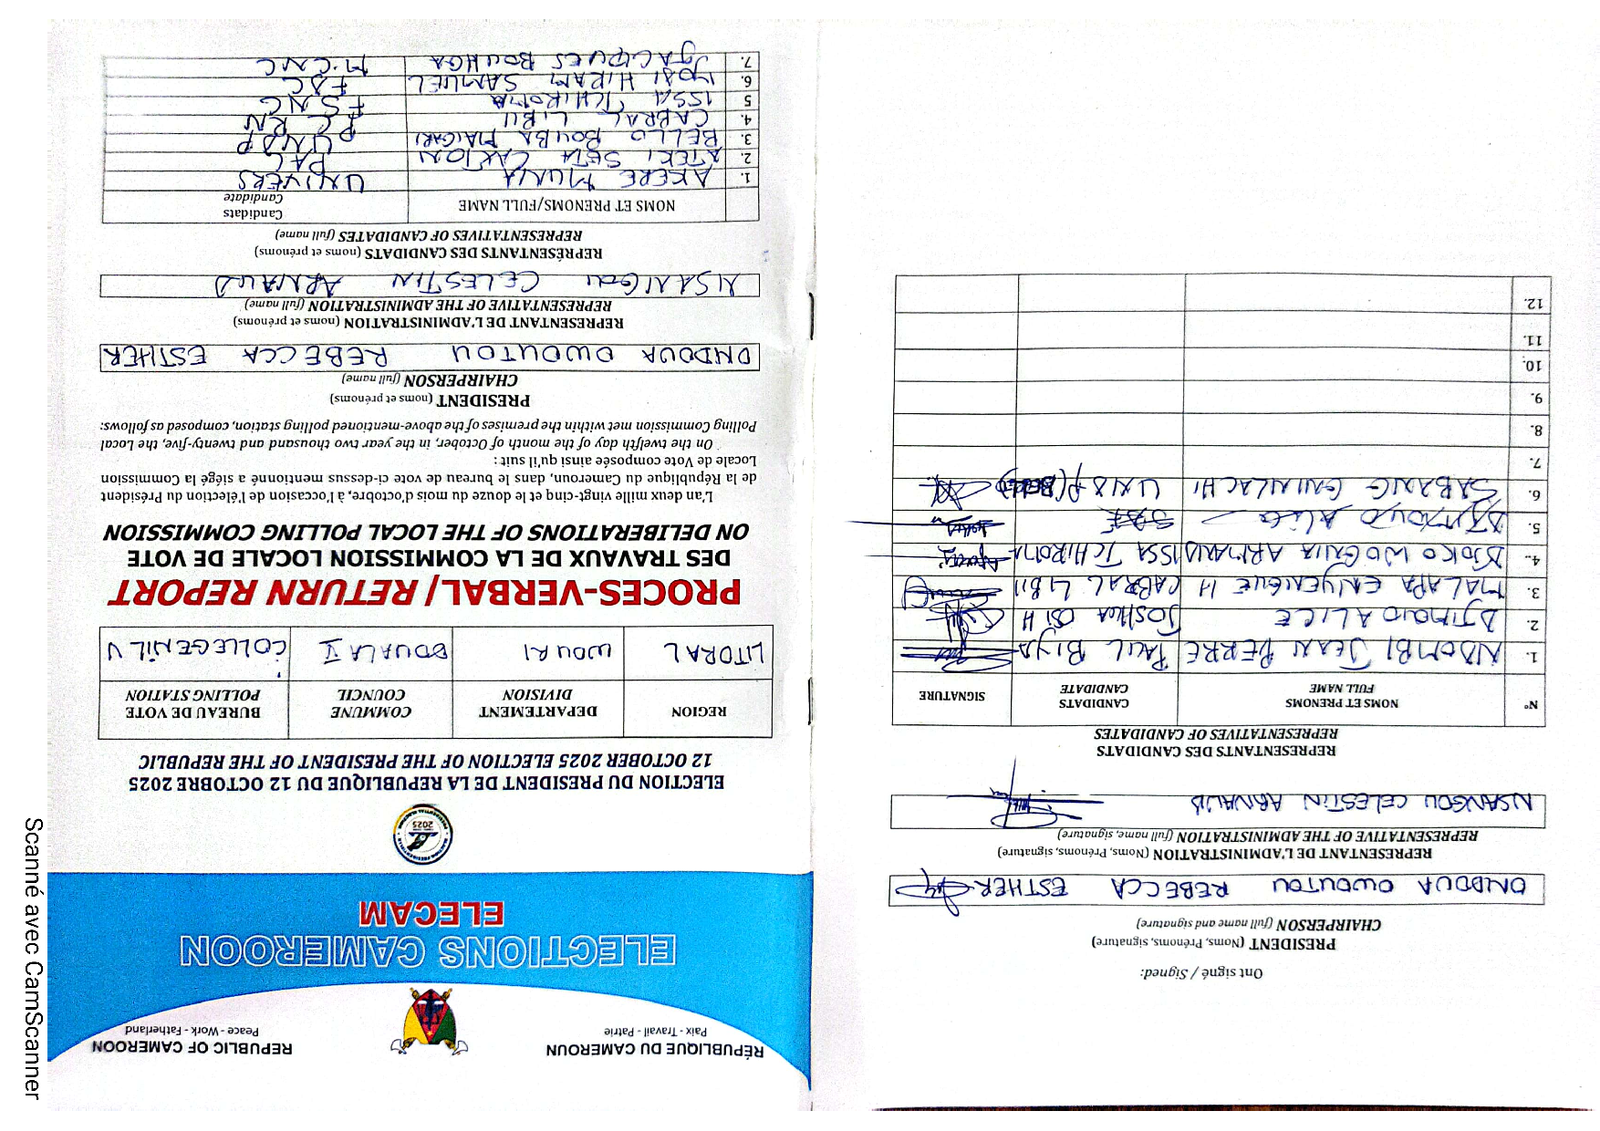 RÉPUBLIQUE DU CAMEROUN
Paix - Travail - Patrie
REPUBLIC OF CAMEROON
Peace - Work - Fatherland
ELECTIONS CAMEROON
ELECAM
ELECTION DU PRESIDENT DE LA REPUBLIQUE DU 12 OCTOBRE 2025
12 OCTOBER 2025 ELECTION OF THE PRESIDENT OF THE REPUBLIC
REGION DEPARTEMENT DIVISION COMMUNE COUNCIL BUREAU DE VOTE POLLING STATION
LITORAL WOURI DOUALA V COLLEGE NIL V
PROCES-VERBAL / RETURN REPORT
DES TRAVAUX DE LA COMMISSION LOCALE DE VOTE
ON DELIBERATIONS OF THE LOCAL POLLING COMMISSION
L'an deux mille vingt-cinq et le douze du mois d'octobre, à l'occasion de l'élection du Président
de la République du Cameroun, dans le bureau de vote ci-dessus mentionné a siégé la Commission
Locale de Vote composée ainsi qu'il suit :
On the twelfth day of the month of October, in the year two thousand and twenty-five, the Local
Polling Commission met within the premises of the above-mentioned polling station, composed as follows:
PRESIDENT (noms et prénoms)
CHAIRPERSON (full name)
ONDOUA OWOUTOU REBECCA ESTHER
REPRESENTANT DE L'ADMINISTRATION (noms et prénoms)
REPRESENTATIVE OF THE ADMINISTRATION (full name)
NSANGOU CELESTIN ARNAUD
REPRÉSENTANTS DES CANDIDATS (noms et prénoms)
REPRESENTATIVES OF CANDIDATES (full name)
NOMS ET PRENOMS/FULL NAME Candidats Candidate
1. AKERE MUNA UNIVERS
2. ATEKI SETA CAXTON PAL
3. BELLO BOUBA MAIGARI UNDP
4. CABRAL LIBII PCRN
5 ISSA TCHIROMA FSNC
6. IYODI HIRAM SAMUEL FDC
7. JACQUES BOUHGA M.CNC
Ont signé / Signed:
PRESIDENT (Noms, Prénoms, signature)
CHAIRPERSON (full name and signature)
ONDOUA OWOUTOU REBECCA ESTHER
REPRESENTANT DE L'ADMINISTRATION (Noms, Prénoms, signature)
REPRESENTATIVE OF THE ADMINISTRATION (full name, signature)
NSANGOU CELESTIN ARNAUD
REPRESENTANTS DES CANDIDATS
REPRESENTATIVES OF CANDIDATES
N° NOMS ET PRENOMS FULL NAME CANDIDATS CANDIDATE SIGNATURE
1. NDOMBI JEAN PERRE PAUL BIYA
2. DJIMOUD ALICE JOSHUA OSIH
3. MALAPA ENYENGUE H CABRAL LIBII
4. DJOKO WOGNIA ARMAND ISSA TCHIROMA
5. Alice
6. SABANG GNINLACHI UNDP
7.
8.
9.
10.
11.
12.
Scanné avec CamScanner